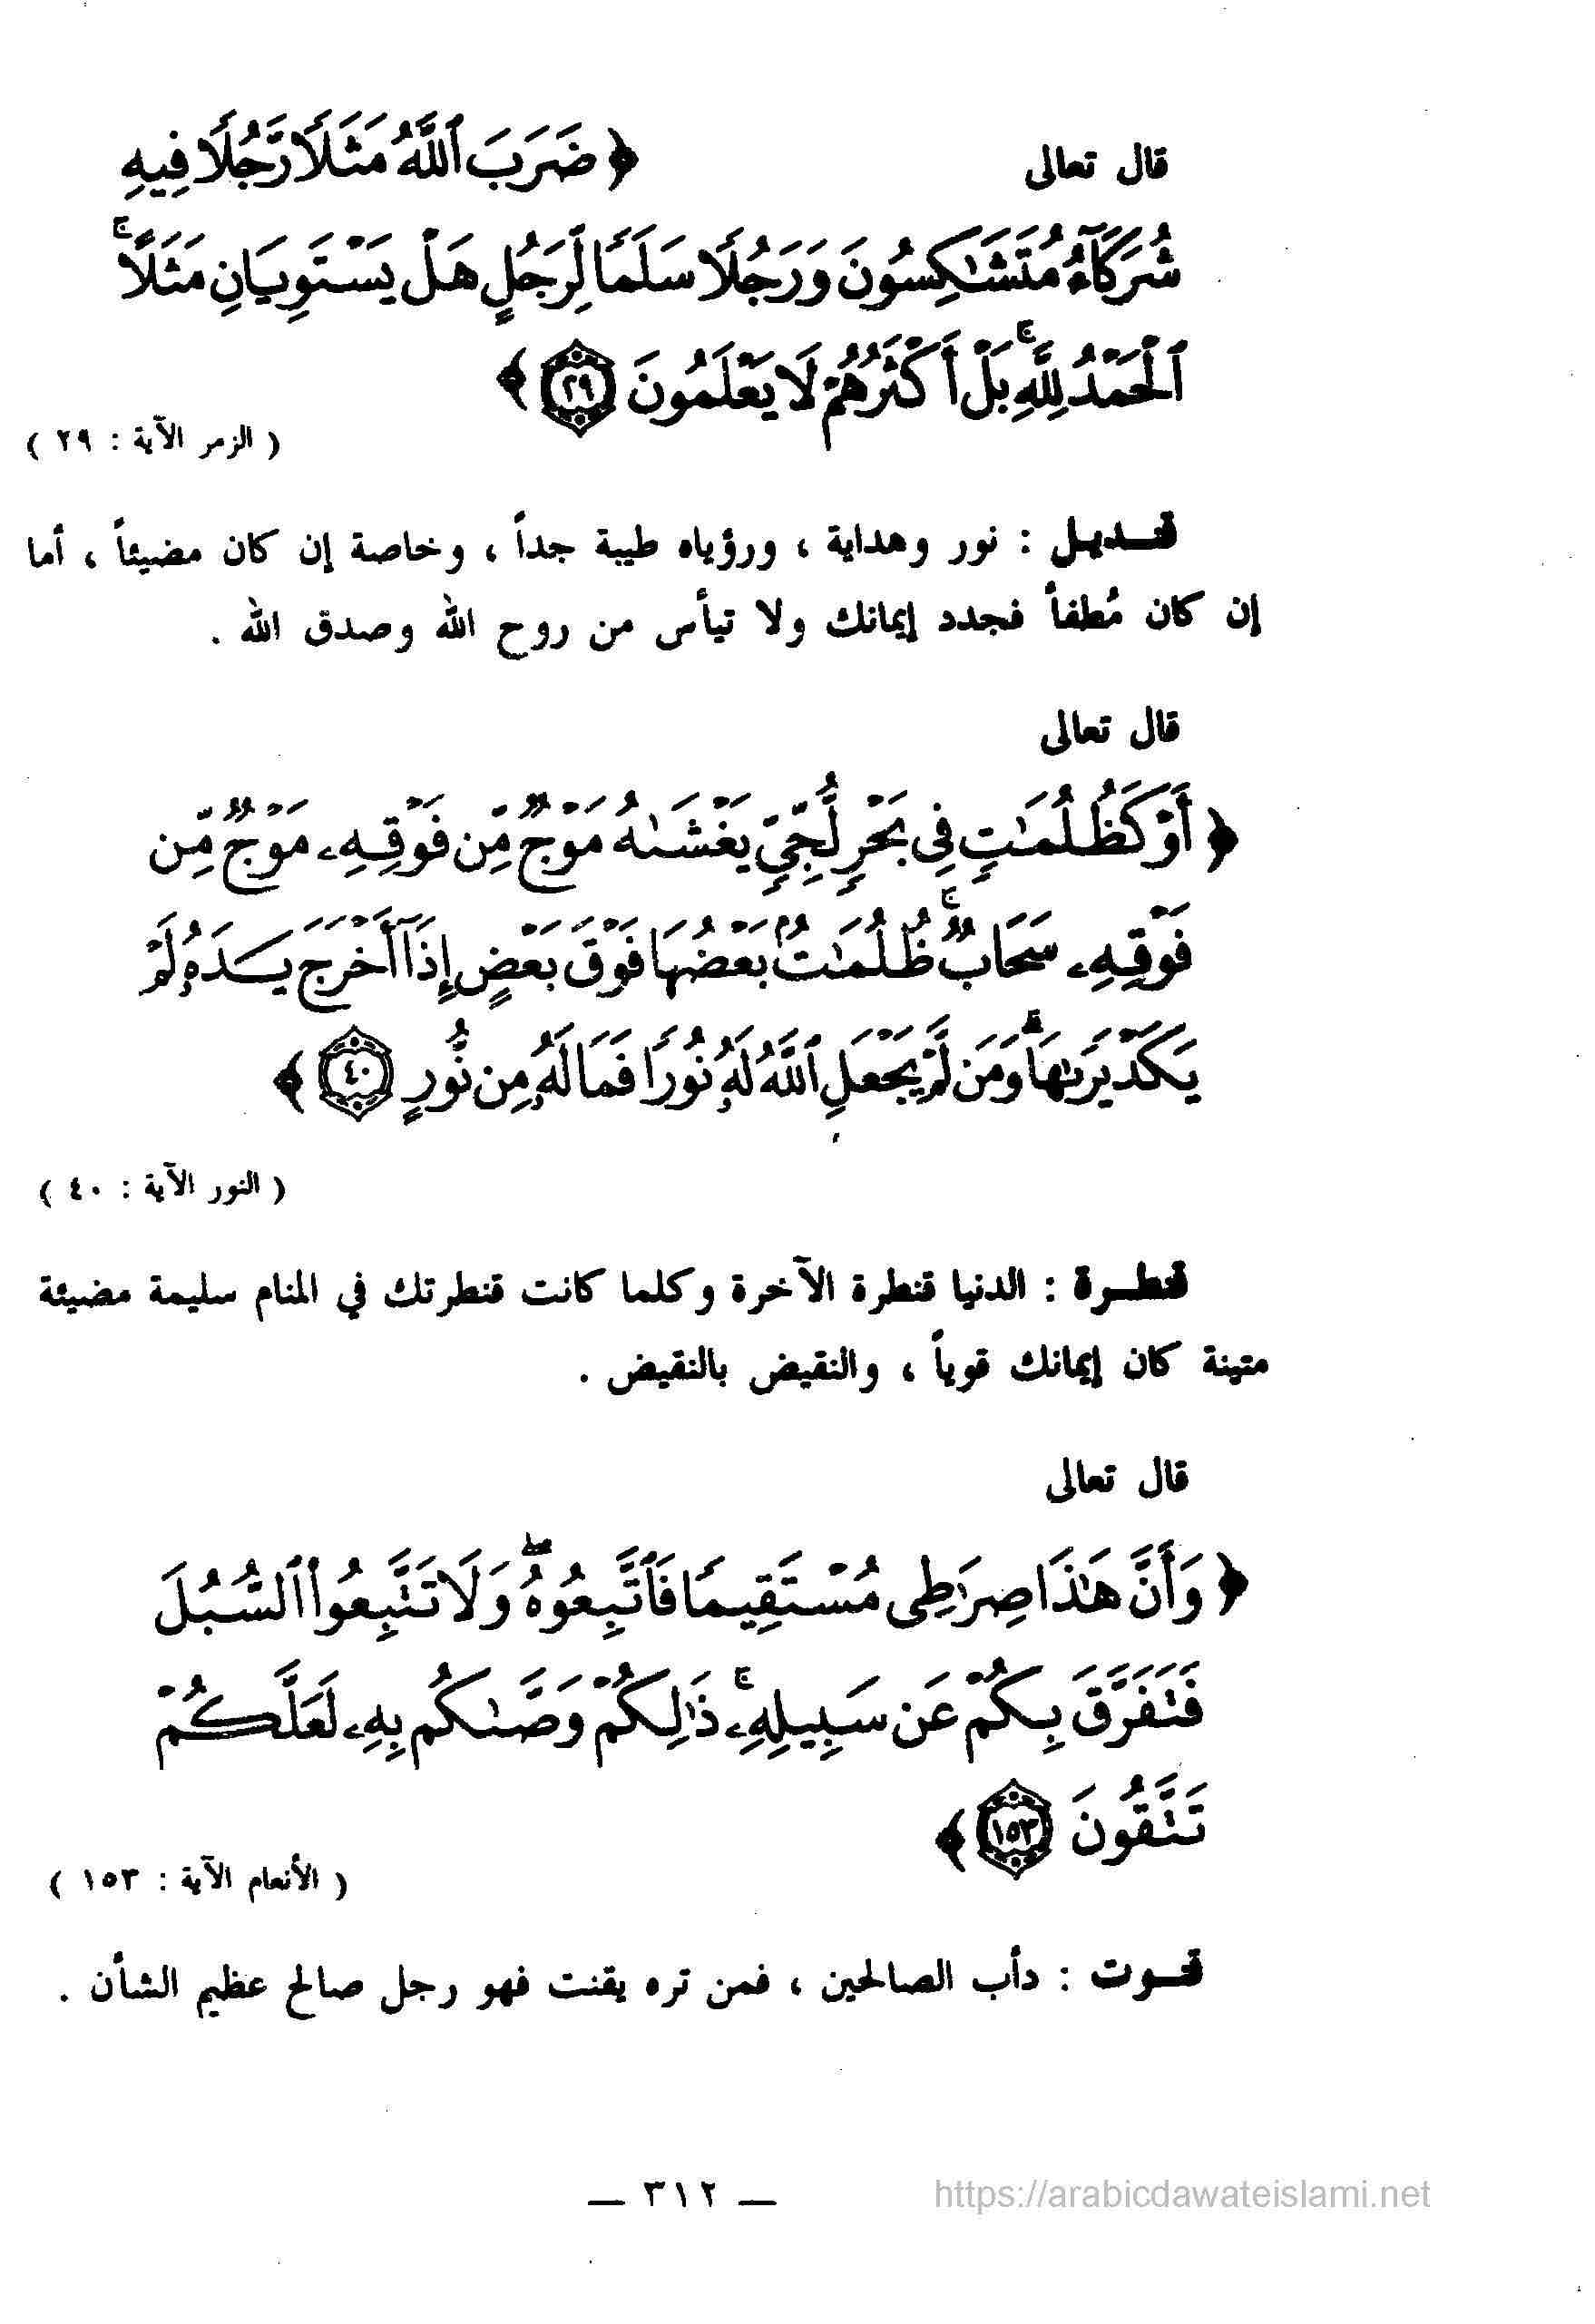 قال تعالى ﴿ ضَرَبَ ٱللَّهُ مَثَلًا رَّجُلًا فِيهِ
شُرَكَآءُ مُتَشَٰكِسُونَ وَرَجُلًا سَلَمًا لِّرَجُلٍ هَلْ يَسْتَوِيَانِ مَثَلًا ۚ
ٱلْحَمْدُ لِلَّهِ ۚ بَلْ أَكْثَرُهُمْ لَا يَعْلَمُونَ ٢٩ ﴾
( الزمر الآية : ٢٩ )
قنـديـل : نور وهداية ، ورؤياه طيبة جداً ، وخاصة إن كان مضيئاً ، أما
إن كان مُطفأ فجدد إيمانك ولا تيأس من روح الله وصدق الله .
قال تعالى
﴿ أَوْ كَظُلُمَٰتٍ فِى بَحْرٍ لُّجِّىٍّ يَغْشَىٰهُ مَوْجٌ مِّن فَوْقِهِۦ مَوْجٌ مِّن
فَوْقِهِۦ سَحَابٌ ۚ ظُلُمَٰتٌۢ بَعْضُهَا فَوْقَ بَعْضٍ إِذَآ أَخْرَجَ يَدَهُۥ لَمْ
يَكَدْ يَرَىٰهَا ۗ وَمَن لَّمْ يَجْعَلِ ٱللَّهُ لَهُۥ نُورًا فَمَا لَهُۥ مِن نُّورٍ ٤٠ ﴾
( النور الآية : ٤٠ )
قنطـرة : الدنيا قنطرة الآخرة وكلما كانت قنطرتك في المنام سليمة مضيئة
متينة كان إيمانك قوياً ، والنقيض بالنقيض .
قال تعالى
﴿ وَأَنَّ هَٰذَا صِرَٰطِى مُسْتَقِيمًا فَٱتَّبِعُوهُ ۖ وَلَا تَتَّبِعُوا۟ ٱلسُّبُلَ
فَتَفَرَّقَ بِكُمْ عَن سَبِيلِهِۦ ۚ ذَٰلِكُمْ وَصَّىٰكُم بِهِۦ لَعَلَّكُمْ
تَتَّقُونَ ١٥٣ ﴾
( الأنعام الآية : ١٥٣ )
قنـوت : دأب الصالحين ، فمن تره يقنت فهو رجل صالح عظيم الشأن .
— ٣١٢ —
https://arabicdawateislami.net